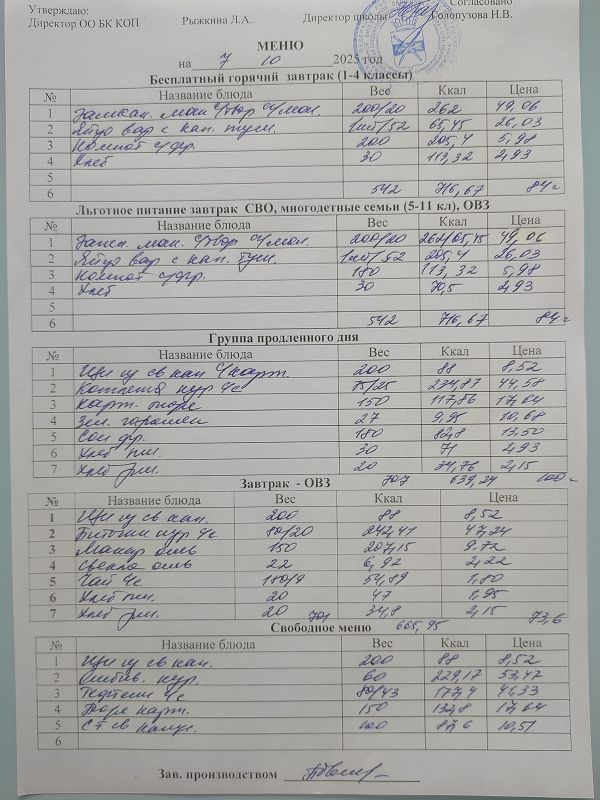 Утверждаю: Согласовано
Директор ОО БК КОП Рыжкина Л.А. Директор школы Голопузова Н.В.
МЕНЮ
на 7 10 2025 год
Бесплатный горячий завтрак (1-4 классы)
№ Название блюда Вес Ккал Цена
1 Запекан. ман с/твор с/мол. 200/20 262 49,06
2 Яйцо вар с кап. туш. 1шт/52 65,45 26,03
3 Компот с/фр. 200 205,4 5,98
4 Хлеб 30 113,32 2,93
5
6 542 716,67 84=
Льготное питание завтрак СВО, многодетные семьи (5-11 кл), ОВЗ
№ Название блюда Вес Ккал Цена
1 Запек. ман. с/твор с/мол. 200/20 262/65,45 49,06
2 Яйцо вар с кап. туш. 1шт/52 205,4 26,03
3 Компот с/фр. 180 113,32 5,98
4 Хлеб 30 70,5 2,93
5
6 542 716,67 84=
Группа продленного дня
№ Название блюда Вес Ккал Цена
1 Щи из св кап с/карт. 200 88 8,52
2 Котлета кур с/с 75/25 234,87 44,58
3 Карт. пюре 150 117,86 17,64
4 Зел. горошек 27 9,95 10,68
5 Сок фр. 180 82,8 13,50
6 Хлеб пш. 30 71 2,93
7 Хлеб рж. 20 34,76 2,15
707 639,24 100=
Завтрак - ОВЗ
№ Название блюда Вес Ккал Цена
1 Щи из св кап. 200 88 8,52
2 Биточки кур с/с 80/20 242,41 47,24
3 Макар отв 150 207,15 9,72
4 Свекла отв 22 6,92 2,22
5 Чай с/с 180/9 54,89 1,80
6 Хлеб пш. 20 47 1,95
7 Хлеб рж. 20 34,8 2,15
701 665,95 73,6
Свободное меню
№ Название блюда Вес Ккал Цена
1 Щи из св кап. 200 88 8,52
2 Отбив. кур. 60 229,17 53,47
3 Тефтели с/с 80/43 177,4 41,33
4 Пюре карт. 150 134,8 17,64
5 С-т св капус. 100 87,6 10,51
6
Зав. производством